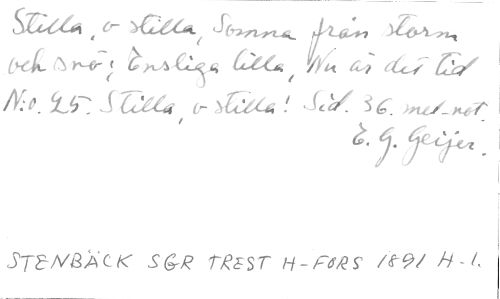 Stilla, o stilla, Somna från storm
och snö; Ensliga lilla, Nu är det tid
N:o. 25. Stilla, o stilla! Sid. 36. med not.
E. G. Geijer.
STENBÄCK SGR TREST H-FORS 1891 H-1.